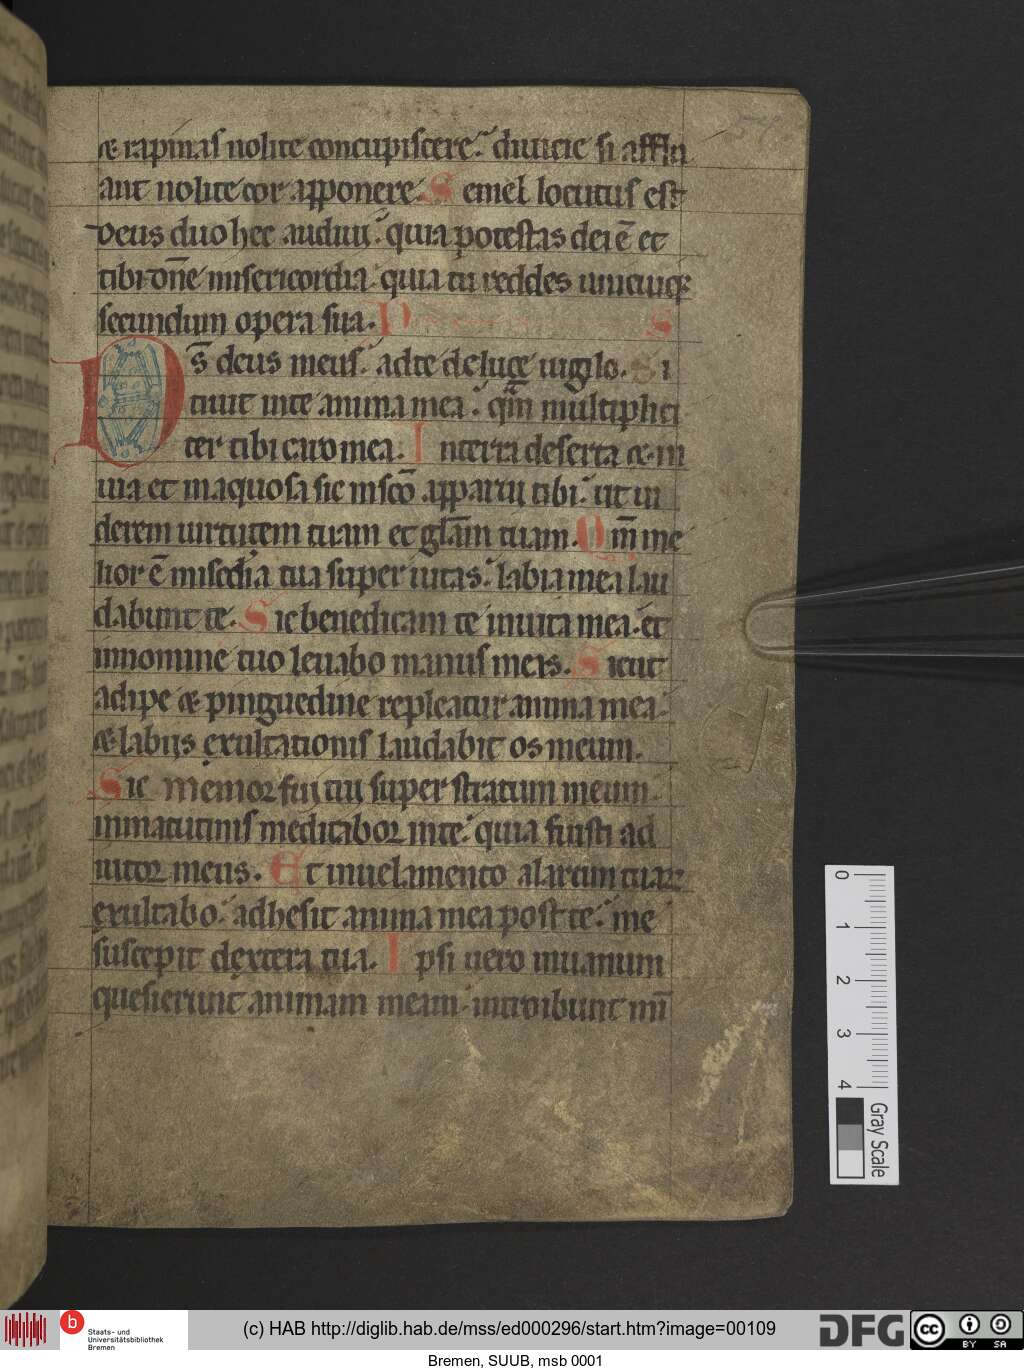 & rapinas nolite concupiscere. diuicie si afflu
ant nolite cor apponere. Semel locutus est
deus duo hec audiui. quia potestas dei ē et
tibi dñe misericordia quia tu reddes unicuiqꝫ
secundum opera sua. P S
Ds̄ deus meus. adte deluce uigilo. Si
tiuit inte anima mea. qm̄ multiplici
ter tibi caro mea. In terra deserta & in
uia et inaquosa sic insc̄o apparui tibi. ut ui
derem uirtutem tuam et gl̄am tuam. Qm̄ me
lior ē mis̄cdia tua super uitas. labia mea lau
dabunt te. Sic benedicam te inuita mea. et
innomine tuo leuabo manus meis. Sicut
adipe & pinguedine repleatur anima mea.
& labiis exultationis laudabit os meum.
Sic memor fui tui super stratum meum
inmatutinis meditabor inte. quia fuisti ad
iutor meus. Et inuelamento alarum tuaꝝ
exultabo. adhesit anima mea post te. me
suscepit dextera tua. Ipsi uero inuanum
quesierunt animam meam introibunt in
0
1
2
3
4
Gray Scale
b
Staats- und
Universitätsbibliothek
Bremen
(c) HAB http://diglib.hab.de/mss/ed000296/start.htm?image=00109
DFG
cc
BY SA
Bremen, SUUB, msb 0001